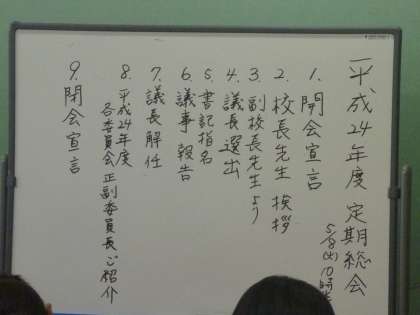 平成24年度 定期総会
5/8(火) 10時
1. 開会宣言
2. 校長先生 挨拶
3. 副校長先生より
4. 議長選出
5. 書記指名
6. 議事報告
7. 議長解任
8. 平成24年度
各委員会正副委員長ご紹介
9. 閉会宣言